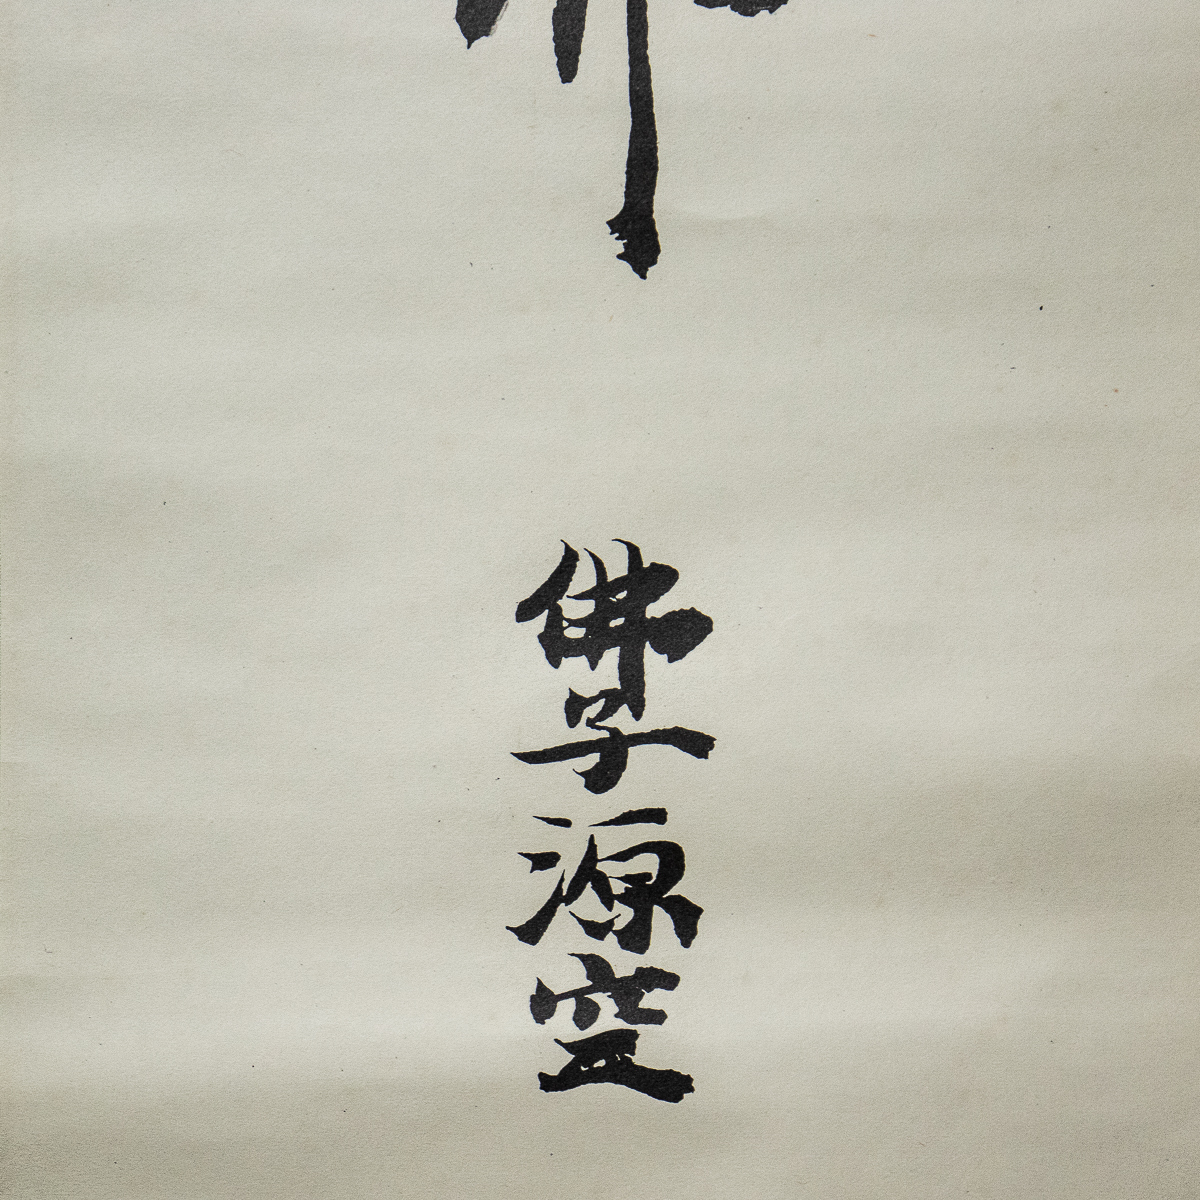 佛子源空